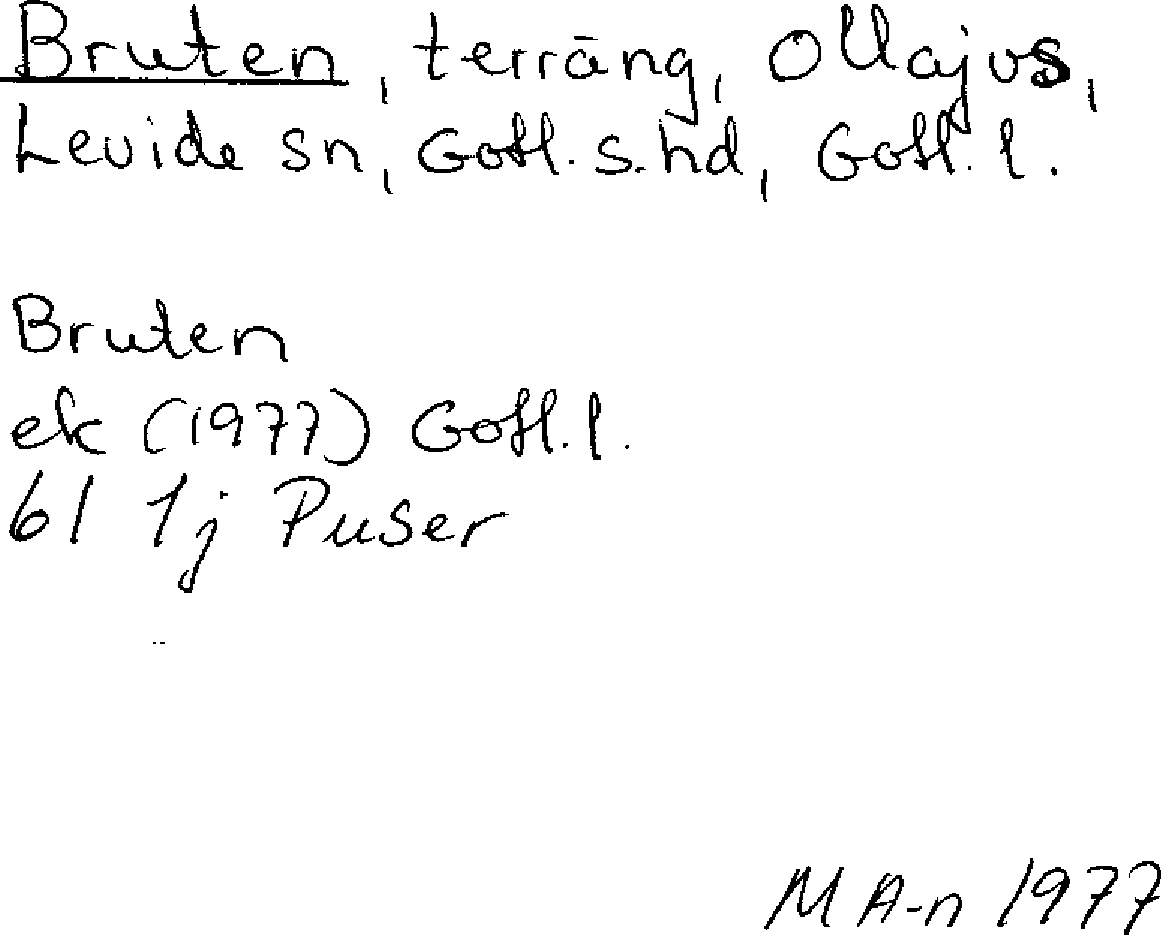 Bruten, terräng, Ollajvs,
Levide sn, Gotl. s. hd, Gotl. l.
Bruten
ek (1977) Gotl. l.
6I 1j Puser
M A-n 1977